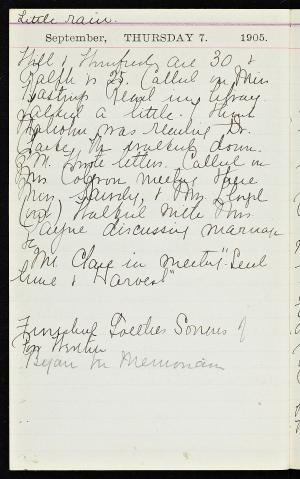 Little rain.
September, THURSDAY 7. 1905.
Will & Winifred are 30 &
Ralph is 25. Called on Miss
Hastings Read in library
walked a little. Then
Malcolm was reading Dr.
Clarke, We walked down.
P.M. Wrote letters. Called on
Mrs. meeting there
Miss & Mrs. Lloyd
walked with Mrs.
Layne discussing marriage
Mr. Clare in meeting "Seed
time & Harvest"
Finished Goethes Sorrows of
Werther
Began In Memoriam